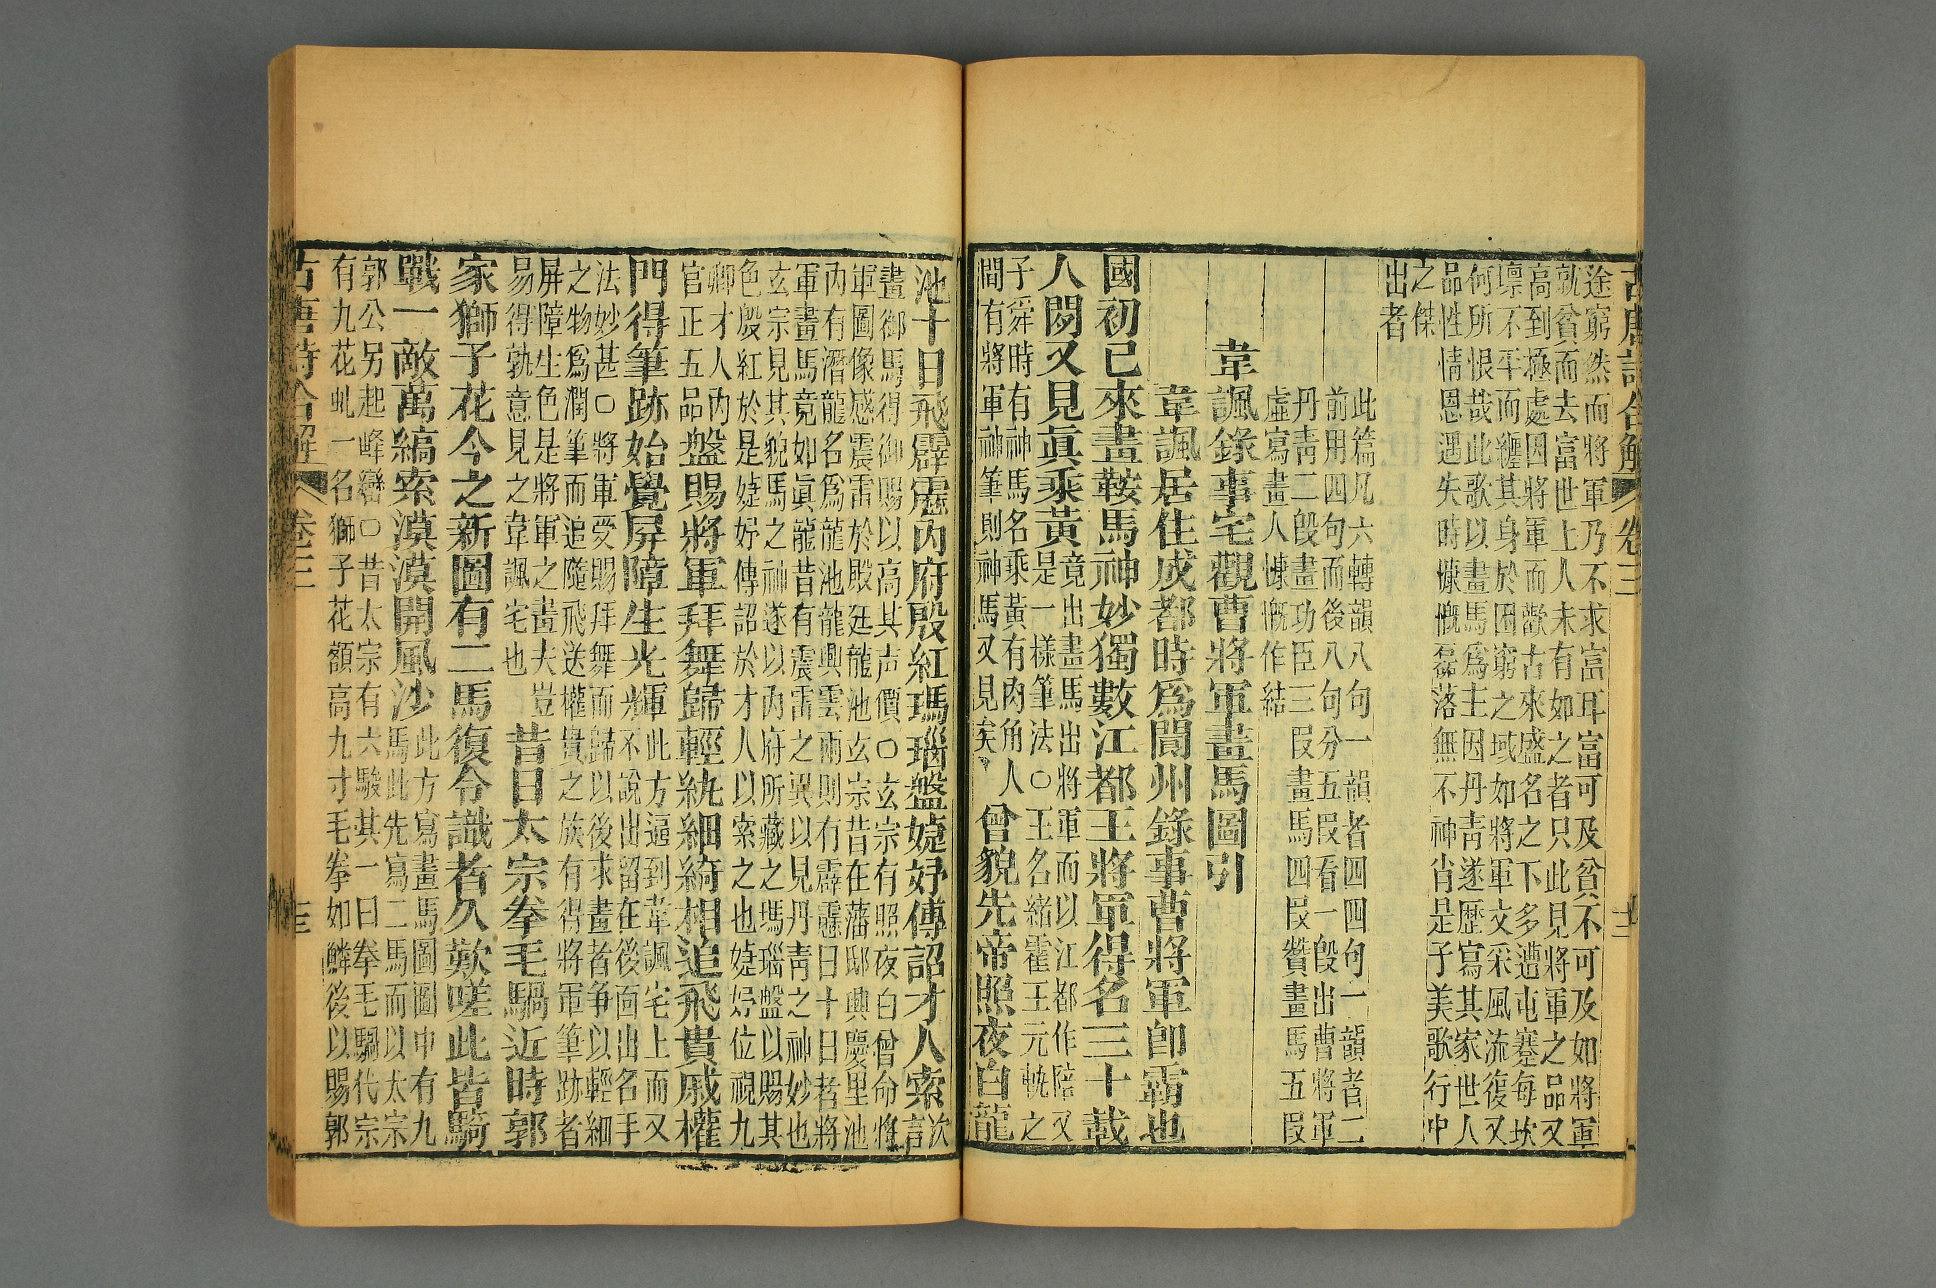 古唐詩合解 卷三 十二
途窮然而將軍乃不求富耳富可及貧不可及如將軍
孰貧而去富世上人未有如之者只此見將軍之品又
高到極處因將軍而歎古來盛名之下多遭屯蹇每坎
壈不平而纏其身於困窮之域如將軍文采風流復又
何所恨哉此歌以畫馬爲主因丹青遂歷寫其家世人
品性情恩遇失時慷慨磊落無不神肖是子美歌行中
之傑
出者
此篇凡六轉韻八句一韻者四四句一韻者二
前用四句而後八句分五段看一段出曹將軍
丹靑二段畫功臣三段畫馬四段贊畫馬五段
虛寫畫人慷慨作結
韋諷錄事宅觀曹將軍畫馬圖引
韋諷居住成都時爲閬州錄事曹將軍卽霸也
國初已來畫鞍馬神妙獨數江都王將軍得名三十載
人閒又見眞乘黃
竟出畫馬出將軍而以江都作陪又
是一樣筆法○江都王名緒霍王元軌之
子舜時有神馬名乘黃有肉角人
間有將軍神筆則神馬又見矣
曾貌先帝照夜白龍
池十日飛霹靂內府殷紅瑪瑙盤婕妤傳詔才人索
次言
畫御馬得御賜以高其声價○玄宗有照夜白曾命將
軍圖像感震雷於殿廷龍池玄宗昔在藩邸興慶里池
內有潛龍名爲龍池龍興雲雨則有霹靂曰十日者將
軍畫馬竟如眞龍昔有震雷之異以見丹靑之神妙也
玄宗見其貌馬之神遂以內府所藏之瑪瑙盤以賜其
色殷紅於是婕妤傳詔於才人以索之也婕妤位視九
卿才人內
官正五品
盤賜將軍拜舞歸輕紈細綺相追飛貴戚權
門得筆跡始覺屏障生光輝
此方逼到韋諷宅上而又
不說出留在後面出名手
法妙甚○將軍受賜拜舞而歸以後求畫者爭以輕細
之物爲潤筆而追隨飛送權貴之族有得將軍筆跡者
屏障生色是將軍之畫夫豈
易得孰意見之韋諷宅也
昔日太宗拳毛騧近時郭
家獅子花今之新圖有二馬復令識者久歎嗟此皆騎
戰一敵萬縞索漠漠開風沙
此方寫畫馬圖圖中有九
馬此先寫二馬而以太宗
郭公另起峰巒○昔太宗有六駿其一曰拳毛騧代宗
有九花虬一名獅子花額高九寸毛拳如鱗後以賜郭
古唐詩合解 卷三 十三